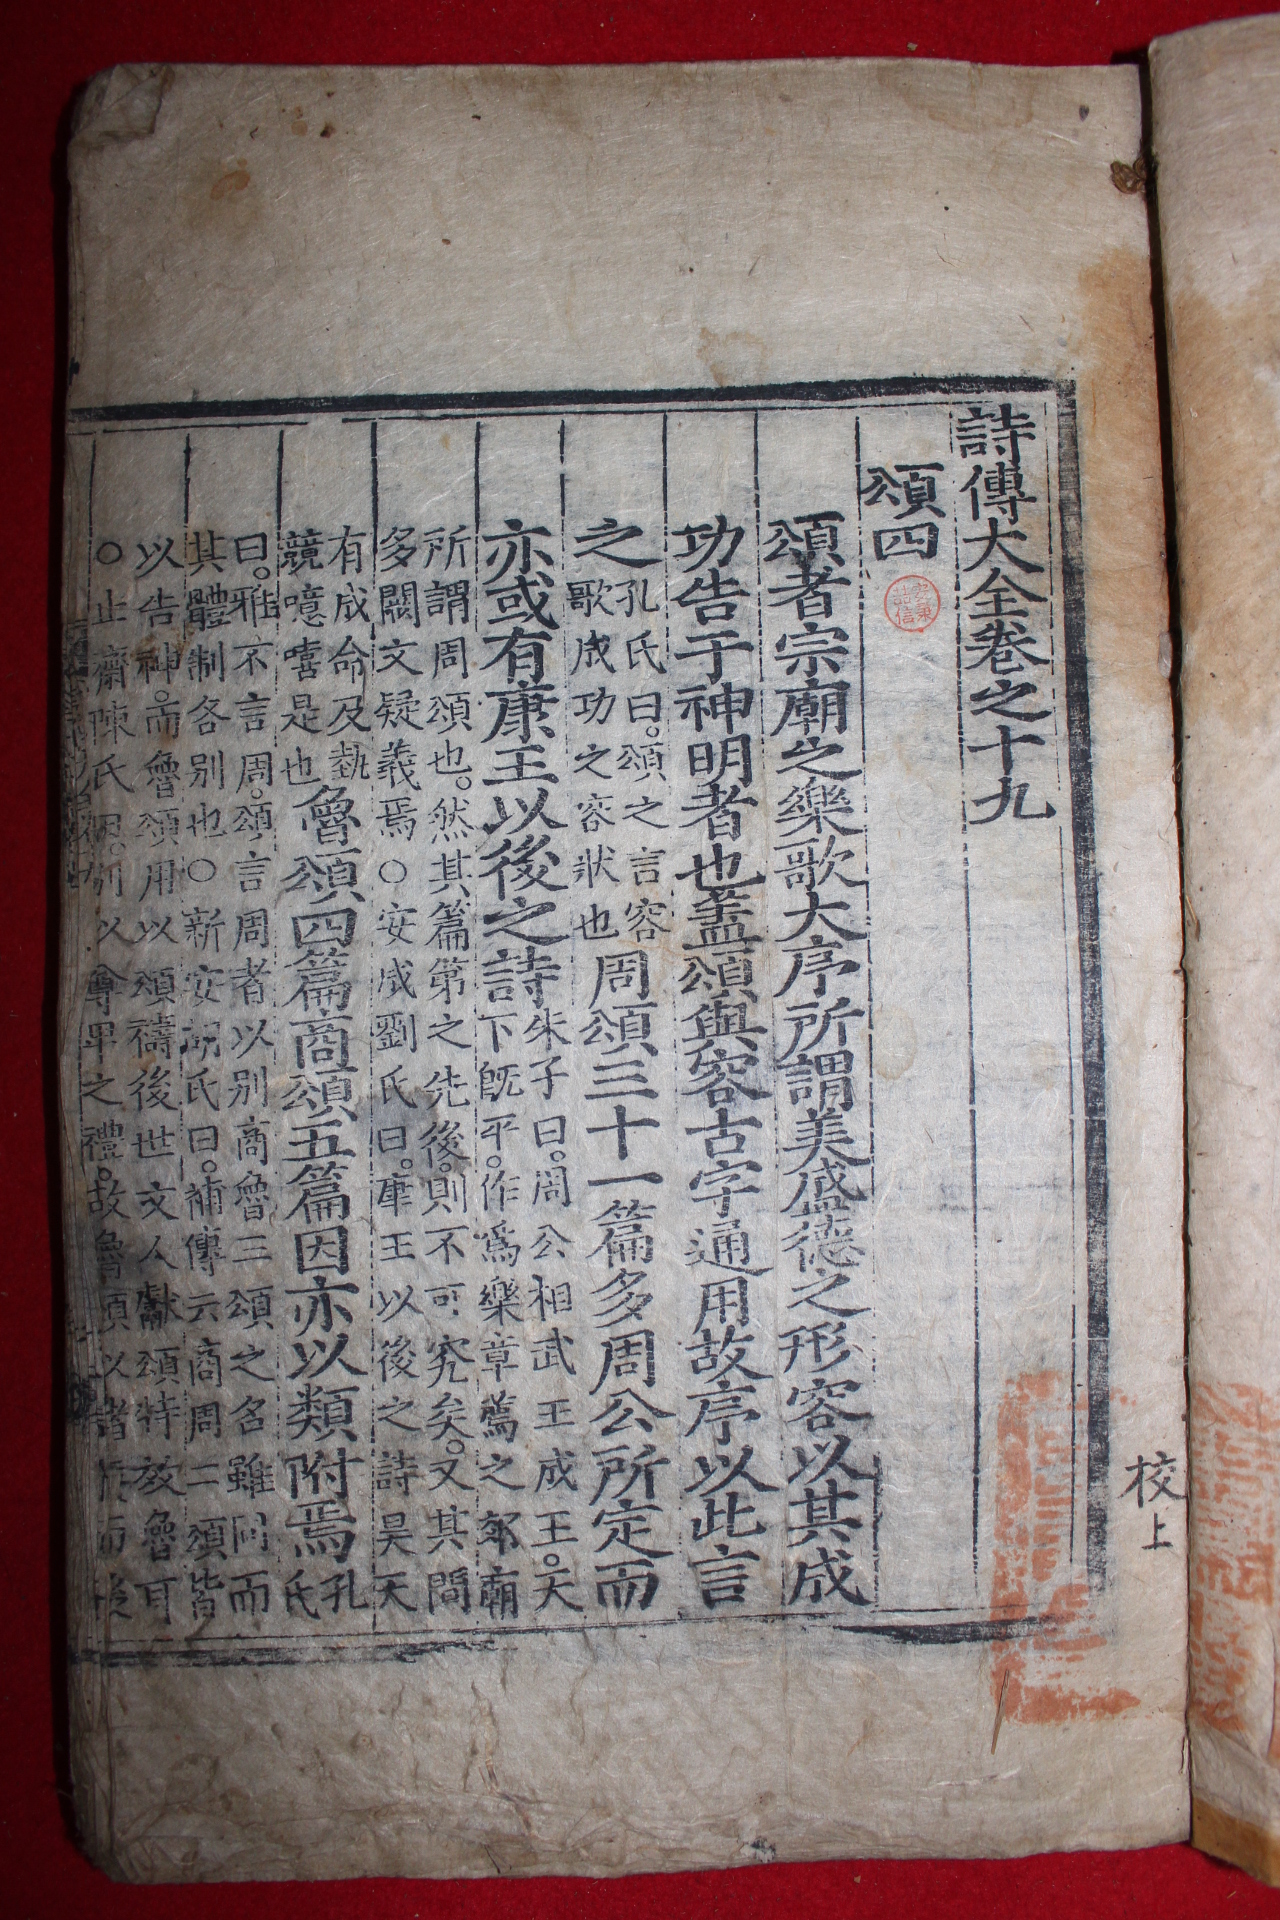 詩傳大全卷之十九
頌四
頌者宗廟之樂歌大序所謂美盛德之形容以其成
功告于神明者也蓋頌與容古字通用故序以此言
之孔氏曰頌之言容歌成功之容狀也周頌三十一篇多周公所定而
亦或有康王以後之詩朱子曰周公相武王成王天下旣平作爲樂章薦之郊廟
所謂周頌也然其篇第之先後則不可究矣又其間
多闕文疑義焉○安成劉氏曰康王以後之詩昊天
有成命及執競噫嘻是也魯頌四篇商頌五篇因亦以類附焉孔氏
曰雅不言周頌言周者以別商魯三頌之名雖同而
其體制各別也○新安胡氏曰補傳云商周二頌皆
以告神而魯頌用以頌禱後世文人獻頌特效魯耳
○止齋陳氏曰別以尊卑之禮故魯頌以諸侯而後
校上